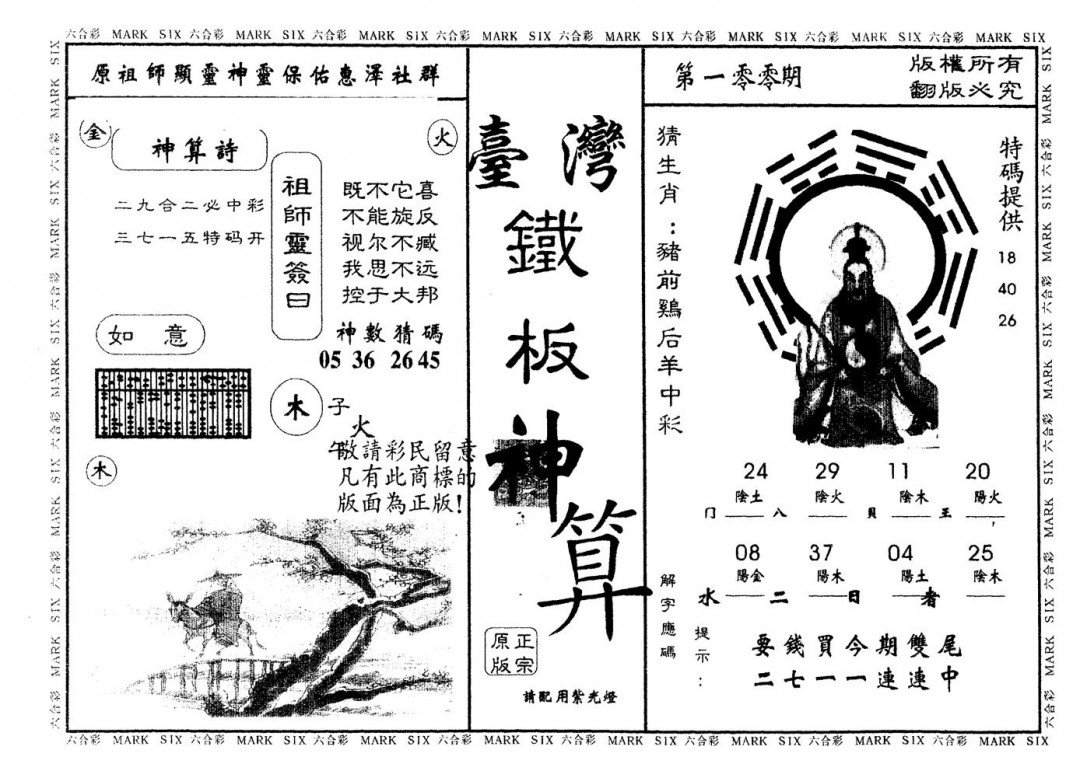 六合彩 MARK SIX 六合彩 六合彩 MARK SIX 六合彩 MARK SIX 六合彩 MARK SIX 六合彩 MARK SIX 六合彩 MARK SIX 六合彩 MARK SIX 六合彩 MARK SIX
原祖師顯靈神靈保佑惠澤社群
金
神算詩
火
二九合二必中彩
三七一五特码开
祖師靈簽曰
既不它喜
不能旋反
视尔不臧
我思不远
控于大邦
神數猜碼
05 36 26 45
如意
木
子
火
午
木
敬請彩民留意
凡有此商標的
版面為正版!
臺灣
鐵
板
神
算
正宗
原版
請配用紫光燈
第一零零期
版權所有
翻版必究
猜生肖:豬前鷄后羊中彩
特碼提供
18
40
26
24 29 11 20
陰土 陰火 陰木 陽火
门 八 貝 王
08 37 04 25
陽金 陽木 陽土 陰木
水 二 日 者
解字應碼
提示:
要錢買今期雙尾
二七一一連連中
六合彩 MARK SIX 六合彩 MARK SIX 六合彩 MARK SIX 六合彩 MARK SIX 六合彩 MARK SIX 六合彩 MARK SIX 六合彩 MARK SIX 六合彩 MARK SIX